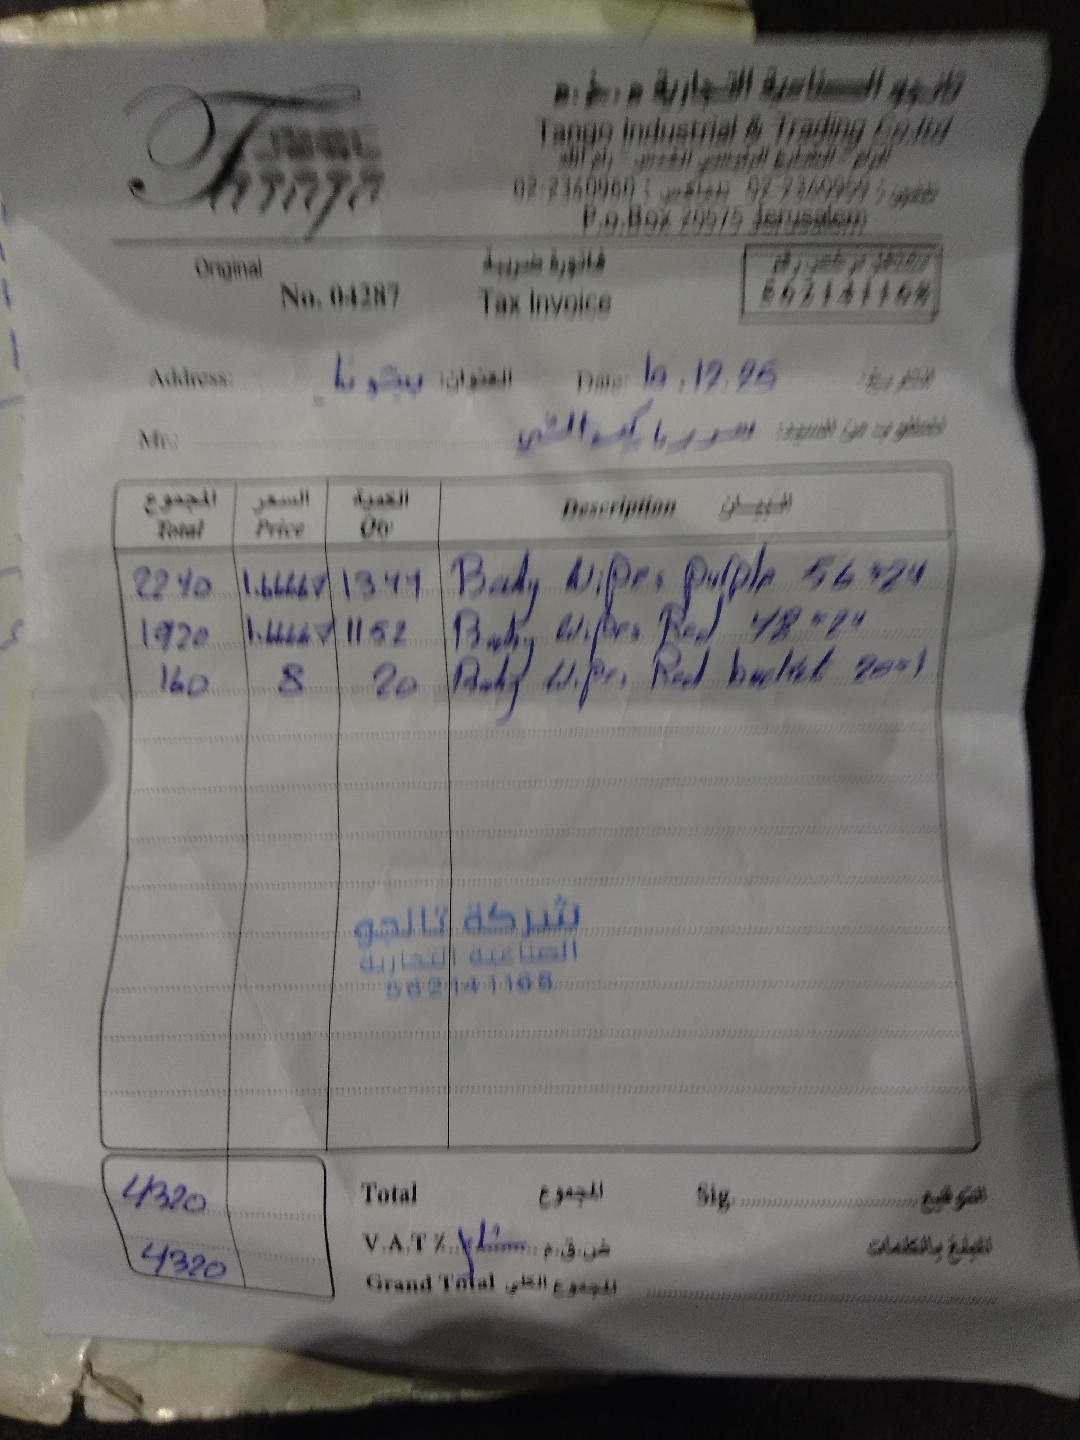 تانجو الصناعية التجارية م.خ.م
Tango
Tango Industrial & Trading Co.ltd
02-2360960 : فاكس 02-2360999 : تلفون
P.o.Box 20575 Jerusalem
Original
فاتورة ضريبية
No. 04287
Tax Invoice
562141168
Address: العنوان: Date: 10.12.25 التاريخ:
Mr.: المطلوب من السيد:
المجموع السعر الكمية البيـــان
Total Price Qty Description
2240 1.66667 1344 Baby wipes purple 56*24
1920 1.66667 1152 Baby wipes Red 48*24
160 8 20 Baby wipes Red bucket 20*1
شركة تانجو
الصناعية التجارية
562141168
4320 Total المجموع Sig. التوقيع
V.A.T % شامل ض.ق.م المبلغ بالكلمات
4320 Grand Total المجموع الكلي